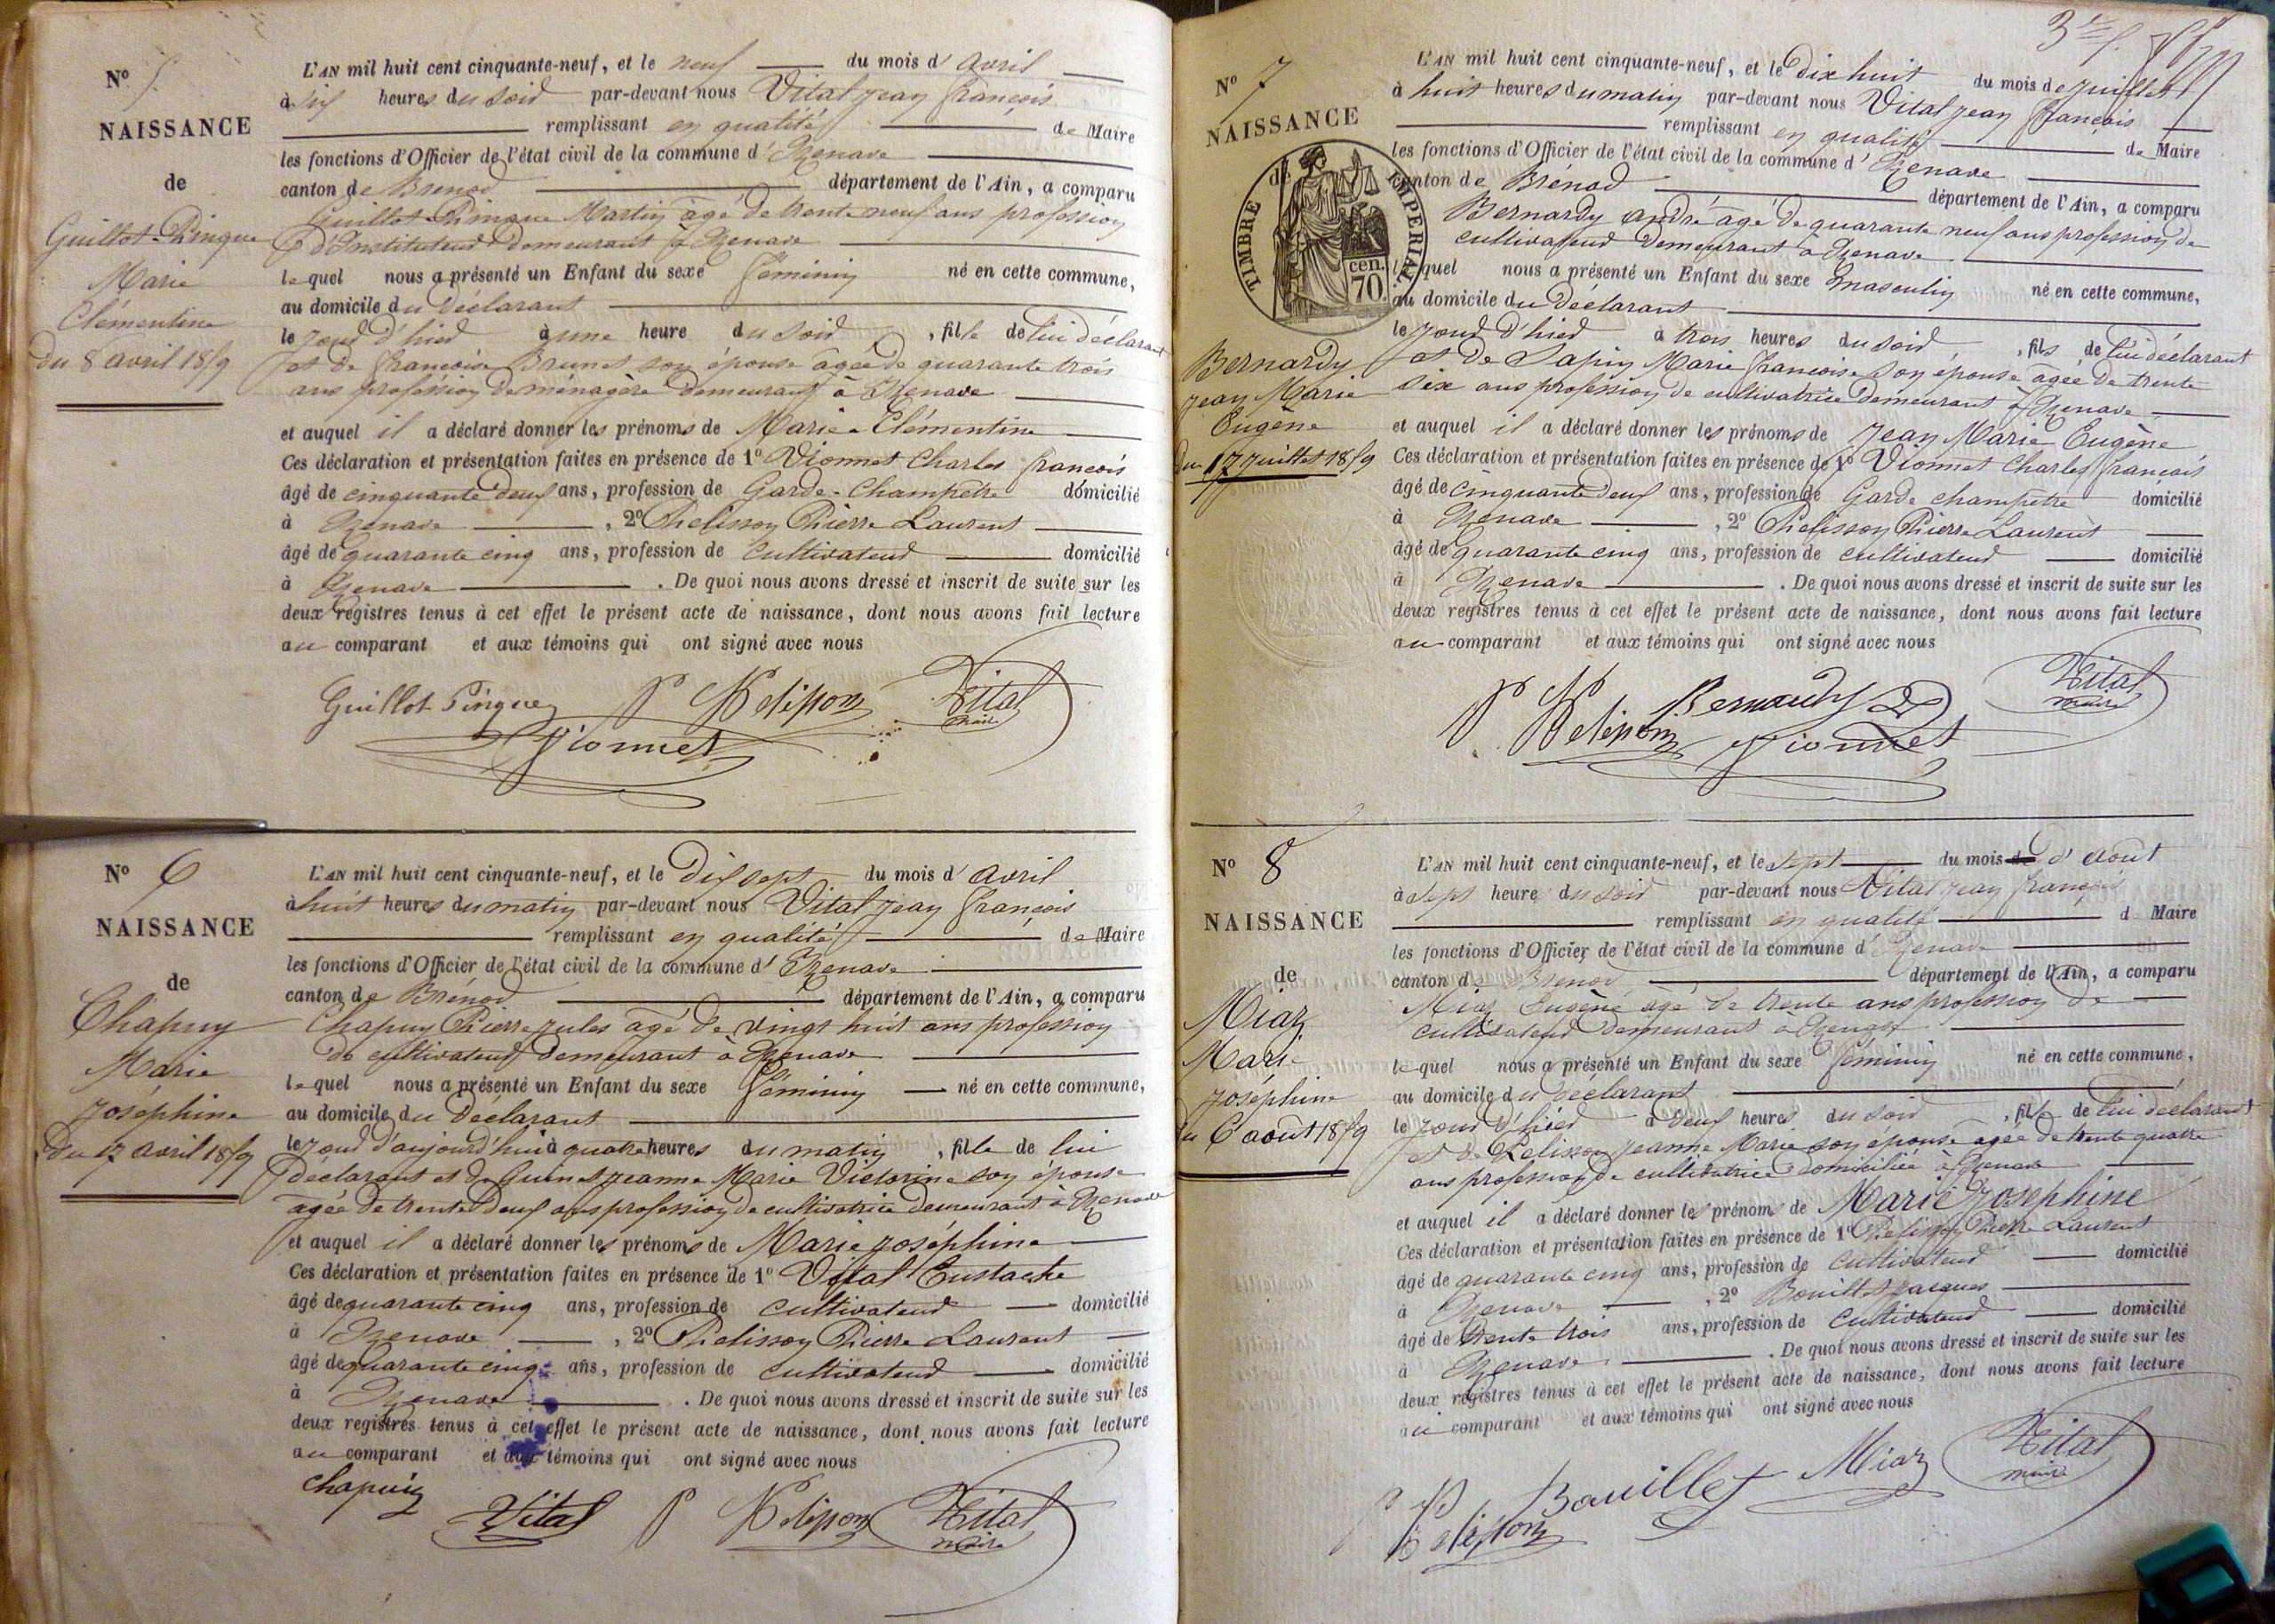 N° 5
NAISSANCE
de
Guillot-Pinque
Marie
Clémentine
du 8 avril 1859
L'AN mil huit cent cinquante-neuf, et le neuf du mois d'avril
à six heures du soir par-devant nous Vital Jean François
remplissant en qualité de Maire
les fonctions d'Officier de l'état civil de la commune d'Izenave
canton de Brenod département de l'Ain, a comparu
Guillot-Pinque Martin âgé de trente neuf ans profession
d'Instituteur demeurant à Izenave
lequel nous a présenté un Enfant du sexe féminin né en cette commune,
au domicile du déclarant
le jour d'hier à une heure du soir, fille de lui déclarant
et de françoise Brunet son épouse agée de quarante trois
ans profession de ménagère demeurant à Izenave
et auquel il a déclaré donner les prénoms de Marie-Clémentine
Ces déclaration et présentation faites en présence de 1° Vionnet Charles françois
âgé de cinquante deux ans, profession de Garde-Champêtre domicilié
à Izenave, 2° Pelisson Pierre Laurent
âgé de quarante cinq ans, profession de cultivateur domicilié
à Izenave. De quoi nous avons dressé et inscrit de suite sur les
deux registres tenus à cet effet le présent acte de naissance, dont nous avons fait lecture
au comparant et aux témoins qui ont signé avec nous
Guillot-Pinque P Pelisson Vital
maire
Vionnet
N° 6
NAISSANCE
de
Chapuy
Marie
Joséphine
du 17 avril 1859
L'AN mil huit cent cinquante-neuf, et le dix sept du mois d'avril
à huit heures du matin par-devant nous Vital Jean François
remplissant en qualité de Maire
les fonctions d'Officier de l'état civil de la commune d'Izenave
canton de Brénod département de l'Ain, a comparu
Chapuy Pierre Jules âgé de vingt huit ans profession
de cultivateur demeurant à Izenave
lequel nous a présenté un Enfant du sexe féminin né en cette commune,
au domicile du déclarant
le jour d'aujourd'hui à quatre heures du matin, fille de lui
déclarant et de Guinet Jeanne Marie Victorine son épouse
agée de trente deux ans profession de cultivatrice demeurant à Izenave
et auquel il a déclaré donner les prénoms de Marie Joséphine
Ces déclaration et présentation faites en présence de 1° Vital Eustache
âgé de quarante cinq ans, profession de cultivateur domicilié
à Izenave, 2° Pelisson Pierre Laurent
âgé de quarante cinq ans, profession de cultivateur domicilié
à Izenave. De quoi nous avons dressé et inscrit de suite sur les
deux registres tenus à cet effet le présent acte de naissance, dont nous avons fait lecture
au comparant et aux témoins qui ont signé avec nous
Chapuis
Vital P Pelisson Vital
maire
N° 7
NAISSANCE
de
TIMBRE IMPERIAL
70 cen.
Bernardy
Jean Marie
Eugène
du 17 juillet 1859
L'AN mil huit cent cinquante-neuf, et le dix huit du mois de juillet
à huit heures du matin par-devant nous Vital Jean François
remplissant en qualité de Maire
les fonctions d'Officier de l'état civil de la commune d'Izenave
canton de Brénod département de l'Ain, a comparu
Bernardy andré âgé de quarante neuf ans profession de
cultivateur demeurant à Izenave
lequel nous a présenté un Enfant du sexe masculin né en cette commune,
au domicile du déclarant
le jour d'hier à trois heures du soir, fils de lui déclarant
et de Sapin Marie françoise son épouse agée de trente
six ans profession de cultivatrice demeurant à Izenave
et auquel il a déclaré donner les prénoms de Jean Marie Eugène
Ces déclaration et présentation faites en présence de 1° Vionnet Charles François
âgé de cinquante deux ans, profession de Garde champêtre domicilié
à Izenave, 2° Pelisson Pierre Laurent
âgé de quarante cinq ans, profession de cultivateur domicilié
à Izenave. De quoi nous avons dressé et inscrit de suite sur les
deux registres tenus à cet effet le présent acte de naissance, dont nous avons fait lecture
au comparant et aux témoins qui ont signé avec nous
P Pelisson Bernardy Vital
maire
Vionnet
N° 8
NAISSANCE
de
Miaz
Marie
Joséphine
du 6 août 1859
L'AN mil huit cent cinquante-neuf, et le sept du mois d'août
à sept heure du soir par-devant nous Vital Jean françois
remplissant en qualité d Maire
les fonctions d'Officier de l'état civil de la commune d'Izenave
canton d Brenod département de l'Ain, a comparu
Miaz Eugène âgé de trente ans profession de
cultivateur demeurant à Izenave
lequel nous a présenté un Enfant du sexe féminin né en cette commune,
au domicile du déclarant
le jour d'hier à deux heures du soir, fille de lui déclarant
et de Pelisson Jeanne Marie son épouse agée de trente quatre
ans profession de cultivatrice domiciliée à Izenave
et auquel il a déclaré donner les prénoms de Marie Josephine
Ces déclaration et présentation faites en présence de 1° Pelisson Pierre Laurent
âgé de quarante cinq ans, profession de cultivateur domicilié
à Izenave, 2° Bouillet Jacques
âgé de trente trois ans, profession de cultivateur domicilié
à Izenave. De quoi nous avons dressé et inscrit de suite sur les
deux registres tenus à cet effet le présent acte de naissance, dont nous avons fait lecture
au comparant et aux témoins qui ont signé avec nous
P Pelisson Bouillet Miaz Vital
maire